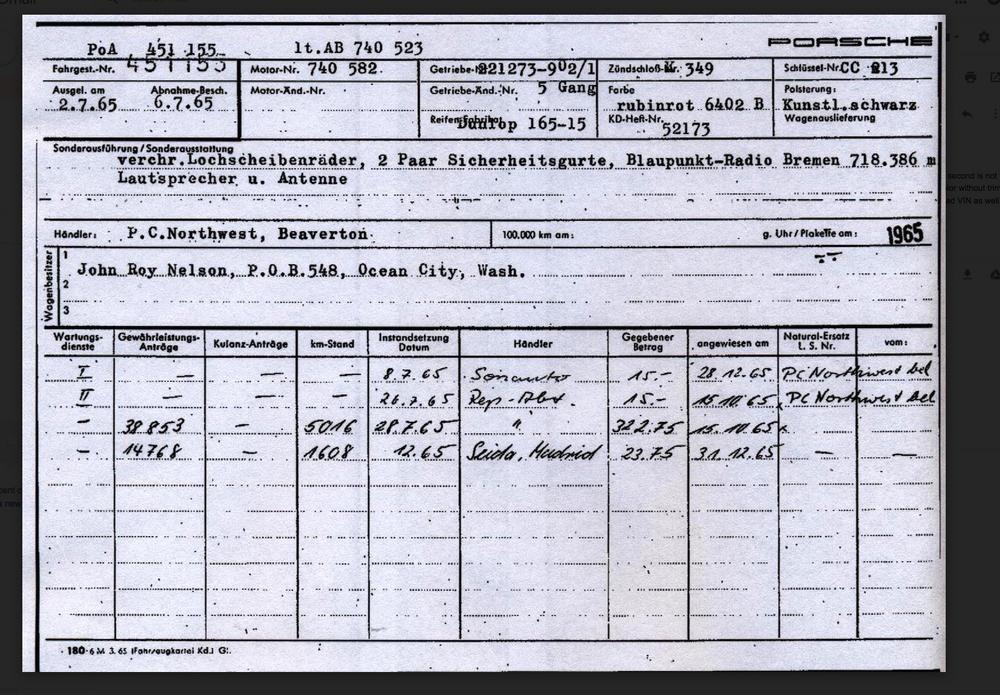 PoA 451 155 lt.AB 740 523 PORSCHE
Fahrgest.-Nr. 451155 Motor-Nr. 740 582 Getriebe-Nr. 221273-902/1 Zündschloß-Nr. 349 Schlüssel-Nr. CC 213
Ausgel. am Abnahme-Besch. Motor-Änd.-Nr. Getriebe-Änd.-Nr. 5 Gang Farbe Polsterung:
2.7.65 6.7.65 rubinrot 6402 B Kunstl.schwarz
Reifenfabrikat Dunlop 165-15 KD-Heft-Nr. 52173 Wagenauslieferung
Sonderausführung / Sonderausstattung
verchr.Lochscheibenräder, 2 Paar Sicherheitsgurte, Blaupunkt-Radio Bremen 718.386 m
Lautsprecher u. Antenne
Händler: P.C.Northwest, Beaverton 100.000 km am: g. Uhr / Plakette am: 1965
Wagenbesitzer
1 John Roy Nelson, P.O.B.548, Ocean City, Wash.
2
3
Wartungs-dienste Gewährleistungs-Anträge Kulanz-Anträge km-Stand Instandsetzung Datum Händler Gegebener Betrag angewiesen am Natural-Ersatz L. S. Nr. vom:
I — — — 8.7.65 Sonauto 15.- 28.12.65 PC Northwest bel
II — — — 26.7.65 Rep-Abt. 15.- 15.10.65 PC Northwest bel
- 38853 - 5016 28.7.65 " 322.75 15.10.65
- 14768 - 1608 12.65 Seida, Madrid 23.75 31.12.65 — —
180·6 M 3. 65 (Fahrzeugkartei Kd.) G.
second is not
or without trim
ed VIN as well